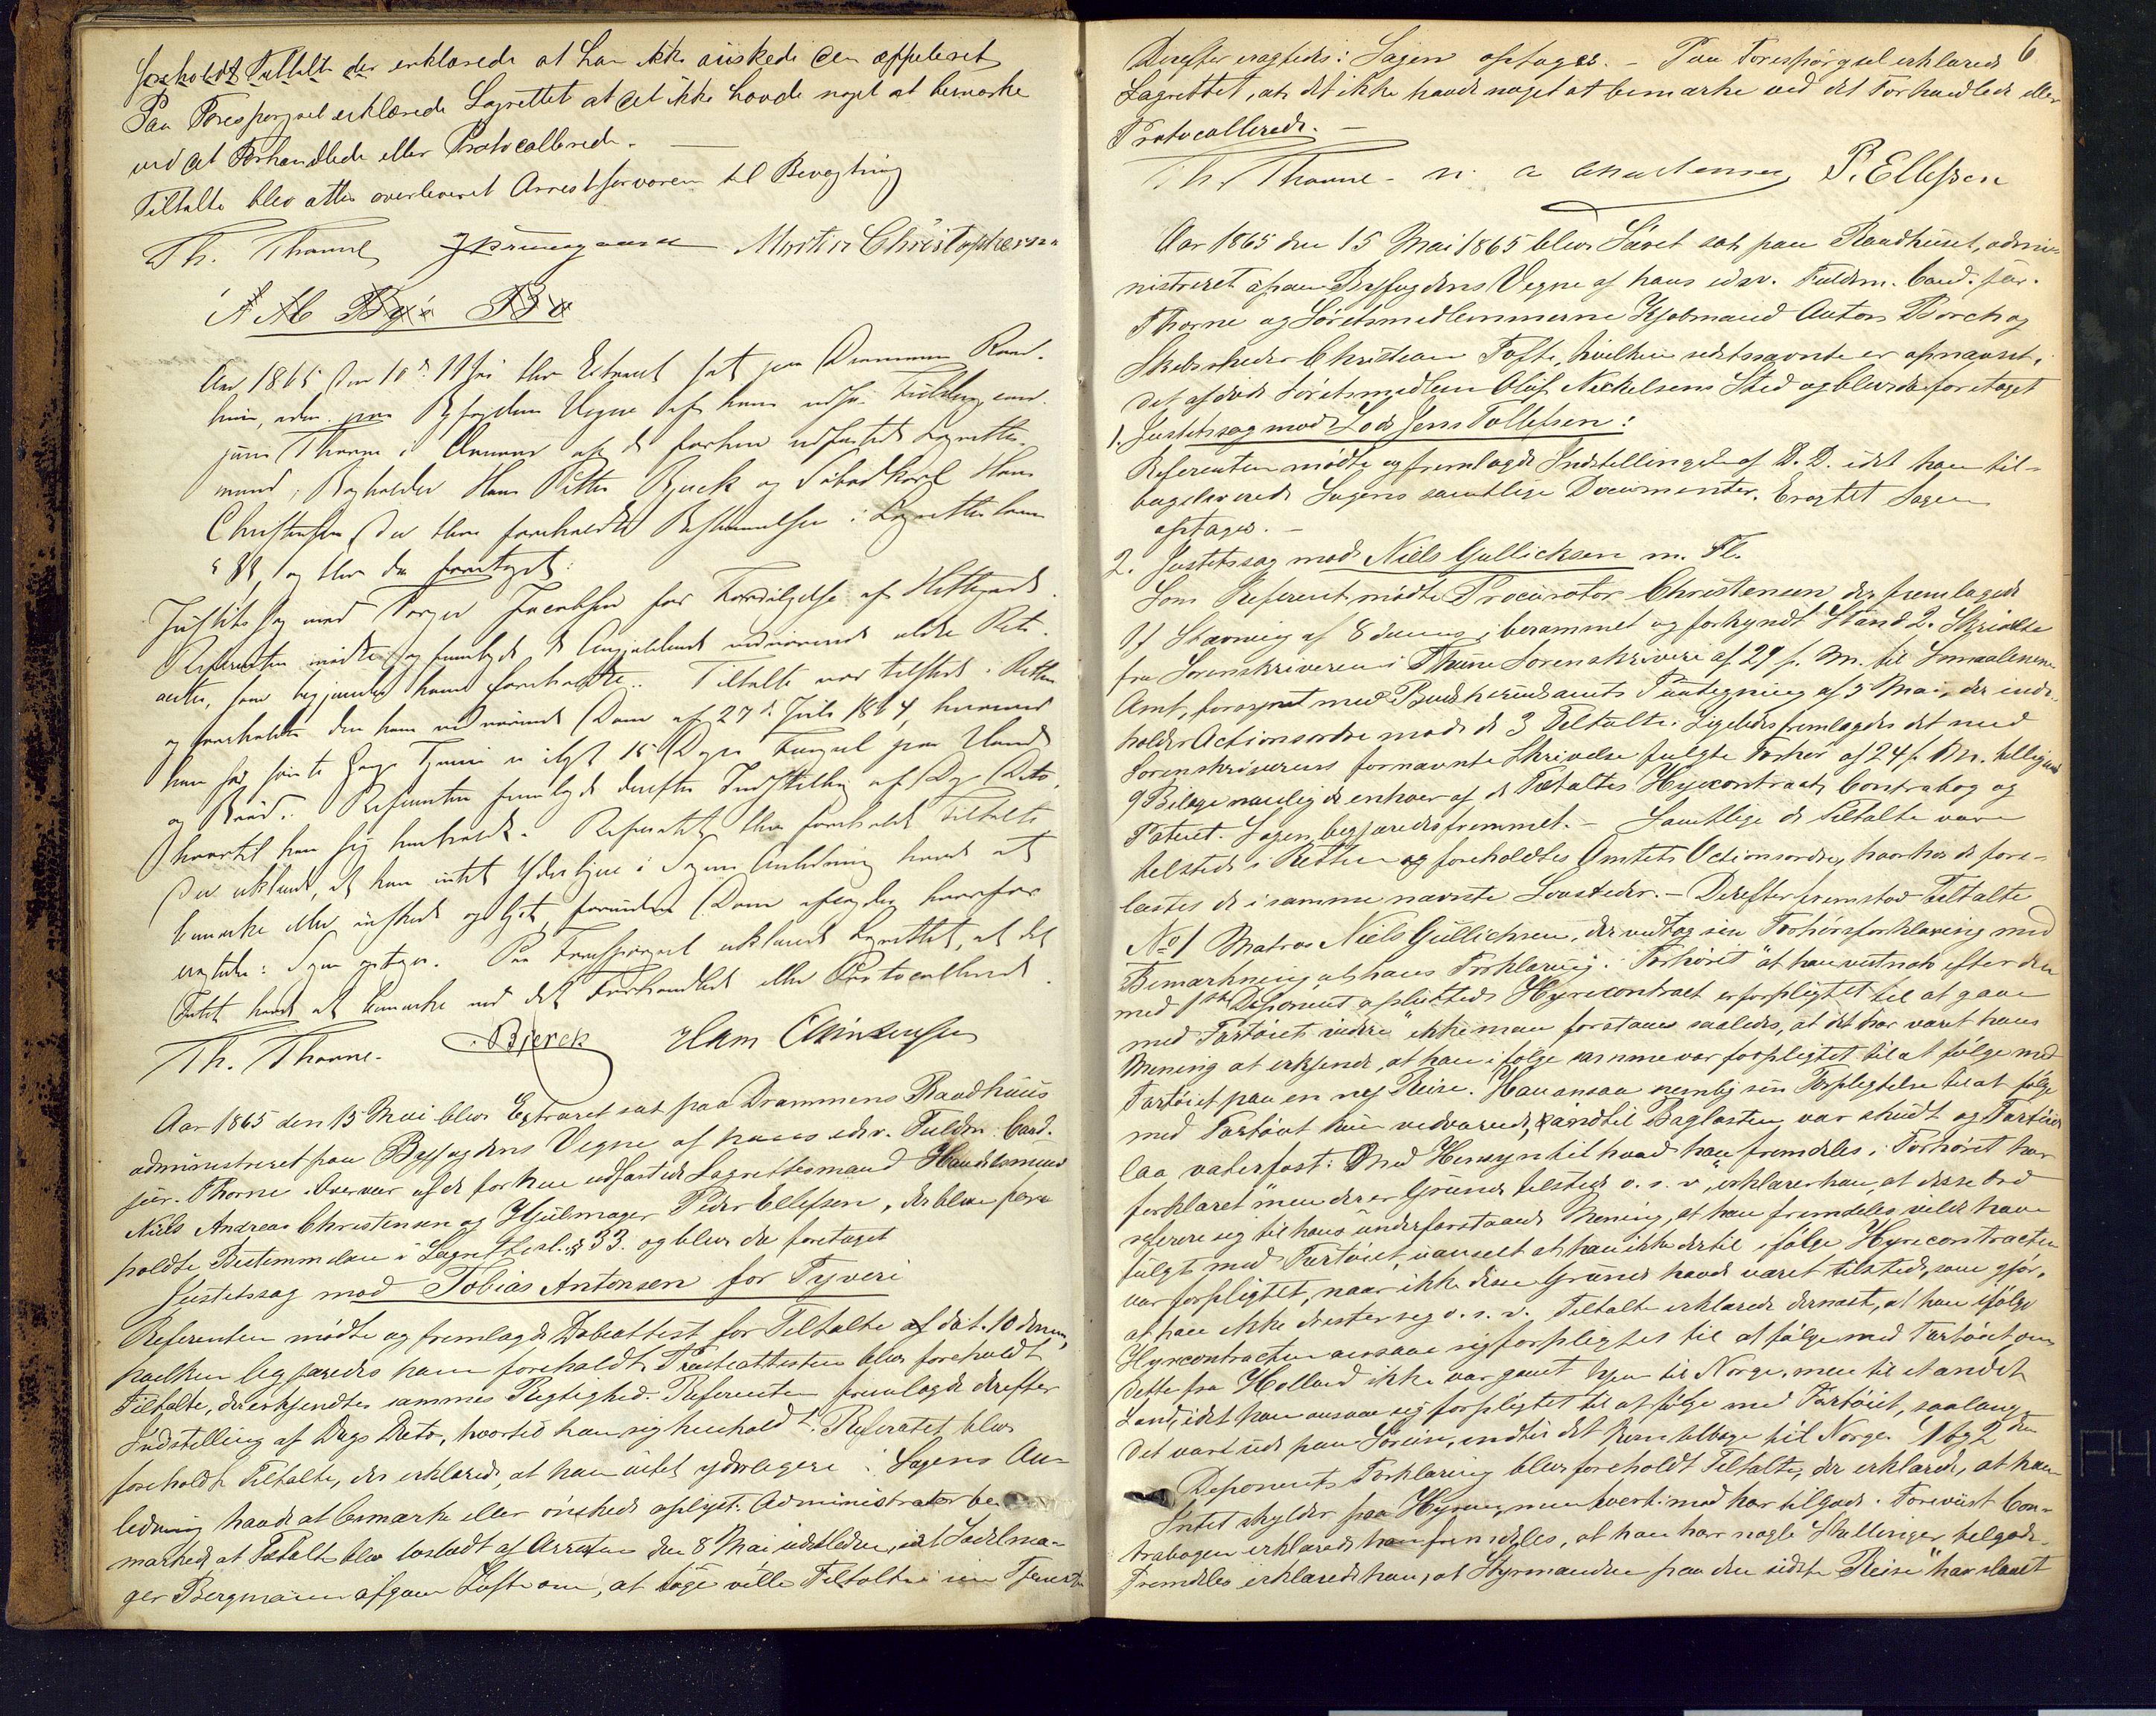 foreholdt Tiltalte der erklærede at han ikke ønskede den appelleret
Paa Forespørgsel erklærede Lagrettet at det ikke havde noget at bemærke
ved det Forhandlede eller Protocollerede. —
Tiltalte blev atter overleveret Arrestforvareren til Bevogtning
Th. Thorne Martin Christophersen
Aar 1865 den 10de Mai blev Extraret sat paa Drammens Raad-
huus, adm. paa Byfogdens Vegne af hans edsv. Fuldm. cand.
jur. Thorne i Overvær af de forhen edfæstede Lagrettes-
mænd, Bogholder Hans Petter Bjerck og Hans
Christensen der blev foreholdte Bestemmelsen i Lagretteloven
§ 33, og blev da foretaget:
Justitssag mod Torger Jacobsen for Fordølgelse af Hittegods.
Referenten mødte og fremlagde de Angjældende vedrørende ældre Rets-
acter, som begjæredes ham foreholdte. Tiltalte var tilstede i Retten
og foreholdtes den ham vedrørende Dom af 27de Juli 1864, hvorved
han for første Gang Tyveri er ilagt 15 Dages Fængsel paa Vand
og Brød. Referenten fremlagde derefter Indstilling af Dags Dato,
hvortil han sig henholdt. Referatet blev foreholdt Tiltalte
der erklærede, at han intet Yderligere i Sagens Anledning havde at
bemærke eller ønskede oplyst, forinden Dom afsagdes, hvorfor
eragtedes: Sagen optages. Paa Forespørgsel erklærede Lagrettet, at det
Intet havde at bemærke ved det Forhandlede eller Protocollerede.
Th. Thorne. Bjerck Hans Christensen
Aar 1865 den 15 Mai blev Extraret sat paa Drammens Raadhuus
administreret paa Byfogdens Vegne af hans edsv. Fuldm. Cand.
jur. Thorne i Overvær af de forhen edfæstede Lagrettesmænd Handelsmand
Niels Andreas Christensen og Hjulmager Peder Ellefsen, der blev fore-
holdte Bestemmelsen i Lagrettesl. § 33. og blev da foretaget
Justitssag mod Tobias Antonsen for Tyveri
Referenten mødte og fremlagde Døbeattest for Tiltalte af dat. 10 dennes,
hvilken begjæredes ham foreholdt. Præsteattesten blev foreholdt
Tiltalte, der erkjendte sammes Rigtighed. Referenten fremlagde derefter
Indstilling af Dags Dato, hvortil han sig henholdt. Referatet blev
foreholdt Tiltalte, der erklærede, at han intet yderligere i Sagens An-
ledning havde at bemærke eller ønskede oplyst. Administrator be
mærkede at Tiltalte blev løsladt af Arresten den 8 Mai idet Sadelma-
ger Bergmann afgav Løfte om, at tage ville Tiltalte i sin Tjeneste
6
Derefter eragtedes: Sagen optages. — Paa Forespørgsel erklærede
Lagrettet, at det ikke havde noget at bemærke ved det Forhandlede eller
Protocollerede. —
Th. Thorne - N. A. Christensen P. Ellefsen
Aar 1865 den 15 Mai 1865 blev Søret sat paa Raadhuset, admi-
nistreret paa Byfogdens Vegne af hans edsv. Fuldm. Cand. jur.
Thorne og Søretsmedlemmerne Kjøbmand Anton Borch og
Skibsrheder Christian Tofte, hvilken sidstnævnte er opnævnt i
det afdøde Søretsmedlem Oluf Nickelsens Sted og blev da foretaget
1. Justitssag mod Lods Jens Tollefsen:
Referenten mødte og fremlagde Indstillingen af D. D. idet han til-
bageleverede Sagens samtlige Documenter. Eragtet Sagen
optages. —
2. Justitssag mod Niels Gullichsen m. Fl.
Som Referent mødte Procurator Christensen der fremlagde
1) Stævning af 8 dennes i berammet og forkyndt Stand 2. Skrivelse
fra Sorenskriveren i Thune Sorenskriveri af 29 f. M. til Smaalenenes
Amt, forsynet med Buskeruds Amts Paategning af 5 Mai, der inde-
holder Actionsordre mod de 3 Tiltalte. Ligeledes fremlagdes det med
Sorenskriverens fornævnte Skrivelse fulgte Forhør af 24 f. M. tilligemed
9 Bilage nemlig de enhver af de Tiltaltes Hyrecontract, Contrabog og
Patent. Sagen begjæredes fremmet. — Samtlige de Tiltalte vare
tilstede i Retten og foreholdtes Amtets Actionsordre, hvorhos de fore-
læstes de i samme nævnte Lovsteder. — Derefter fremstod Tiltalte
No 1 Matros Niels Gullichsen, der vedtog sin Forhørsforklaring med
Bemærkning at hans Forklaring i Forhøret "at han vistnok efter den
med 1ste Deponent afsluttede Hyrecontract er forpligtet til at gaae
med Fartøiet videre" ikke maa forstaaes saaledes, at det har været hans
Mening at erkjende, at han ifølge samme var forpligtet til at følge med
Fartøiet paa en ny Reise. Han ansaa nemlig sin Forpligtelse til at følge
med Fartøiet kun vedvarende, indtil Baglasten var skudt og Fartøiet
laa vaterfast. Med Hensyn til hvad han fremdeles i Forhøret har
forklaret "men der er Grunde tilstede o. s. v., erklærer han, at disse Ord
referere sig til hans underforstaaede Mening, at han fremdeles vilde have
fulgt med Fartøiet, uanseet at han ikke dertil ifølge Hyrecontracten
var forpligtet, naar ikke disse Grunde havde været tilstede, som gjør,
at han ikke drister sig o. s. v. Tiltalte erklærede dernæst, at han ifølge
Hyrecontracten ansaae sig forpligtet til at følge med Fartøiet, om
dette fra Holland ikke var gaaet hjem til Norge, men til et andet
Land, idet han ansaae sig forpligtet til at følge med Fartøiet, saalænge
det var ude paa Søreise, indtil det kom tilbage til Norge. 1 og 2 den
Deponents Forklaring blev foreholdt Tiltalte, der erklærede, at han
Intet skylder paa Hyren, men tvertimod har tilgode. Foreviist Con-
trabogen erklærede han fremdeles, at han har nogle Skillinger tilgode.
Fremdeles erklærede han, at Styrmanden paa den sidste Reise "har slaaet